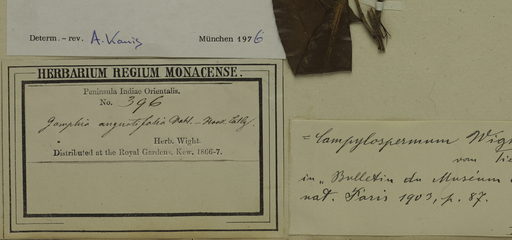 Determ. - rev. A. Kanis München 1976
HERBARIUM REGIUM MONACENSE.
Peninsula Indiae Orientalis.
No. 396
Gomphia angustifolia Vahl. -
Herb. Wight.
Distributed at the Royal Gardens, Kew, 1866-7.
= Campylospermum Wigh
von Tie
in "Bulletin du Muséum
nat. Paris 1903, p. 87.